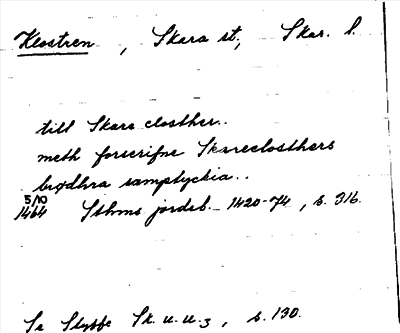 Klostren, Skara st., Skar. l.
till Skara closther..
meth forscrifne Skareclosthers
brødhra samptyckia..
5/10
1464 Sthms jordeb. 1420-74, s. 316.
Se Styffe Sk. u. u.3, s. 130.